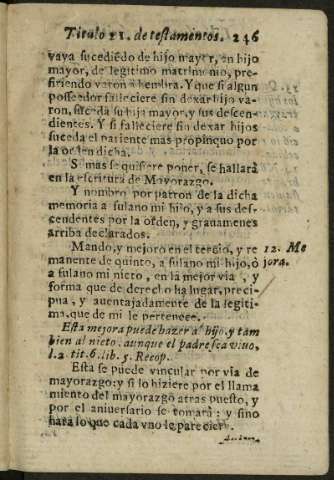 Titulo 11. de testamentos. 246
vaya sucediẽdo de hijo mayor, en hijo
mayor, de legitimo matrimonio, pre-
firiendo varon a hembra. Y que si algun
posseedor falleciere sin dexar hijo va-
ron, suceda su hija mayor, y sus descen-
dientes. Y si falleciere sin dexar hijos
suceda el pariente mas propinquo por
la orden dicha.
Si mas se quisiere poner, se hallarà
en la escritura de Mayorazgo.
Y nombro por patron de la dicha
memoria a fulano mi hijo, y a sus des-
cendentes por la orden, y grauamenes
arriba declarados.
Mando, y mejoro en el tercio, y re
manente de quinto, a fulano mi hijo, ò
a fulano mi nieto, en la mejor via, y
forma que de derecho ha lugar, preci-
pua, y auentajadamente de la legiti-
ma, que de mi le pertenece.
12. Me
jora.
Esta mejora puede hazer a hijo, y tam
bien al nieto, aunque el padre sea viuo,
l. 2. tit. 6. lib. 5. Recop.
Esta se puede vincular por via de
mayorazgo: y si lo hiziere por el llama
miento del mayorazgo atras puesto, y
por el aniuersario se tomarà: y sino
harà lo que cada vno le pareciere.